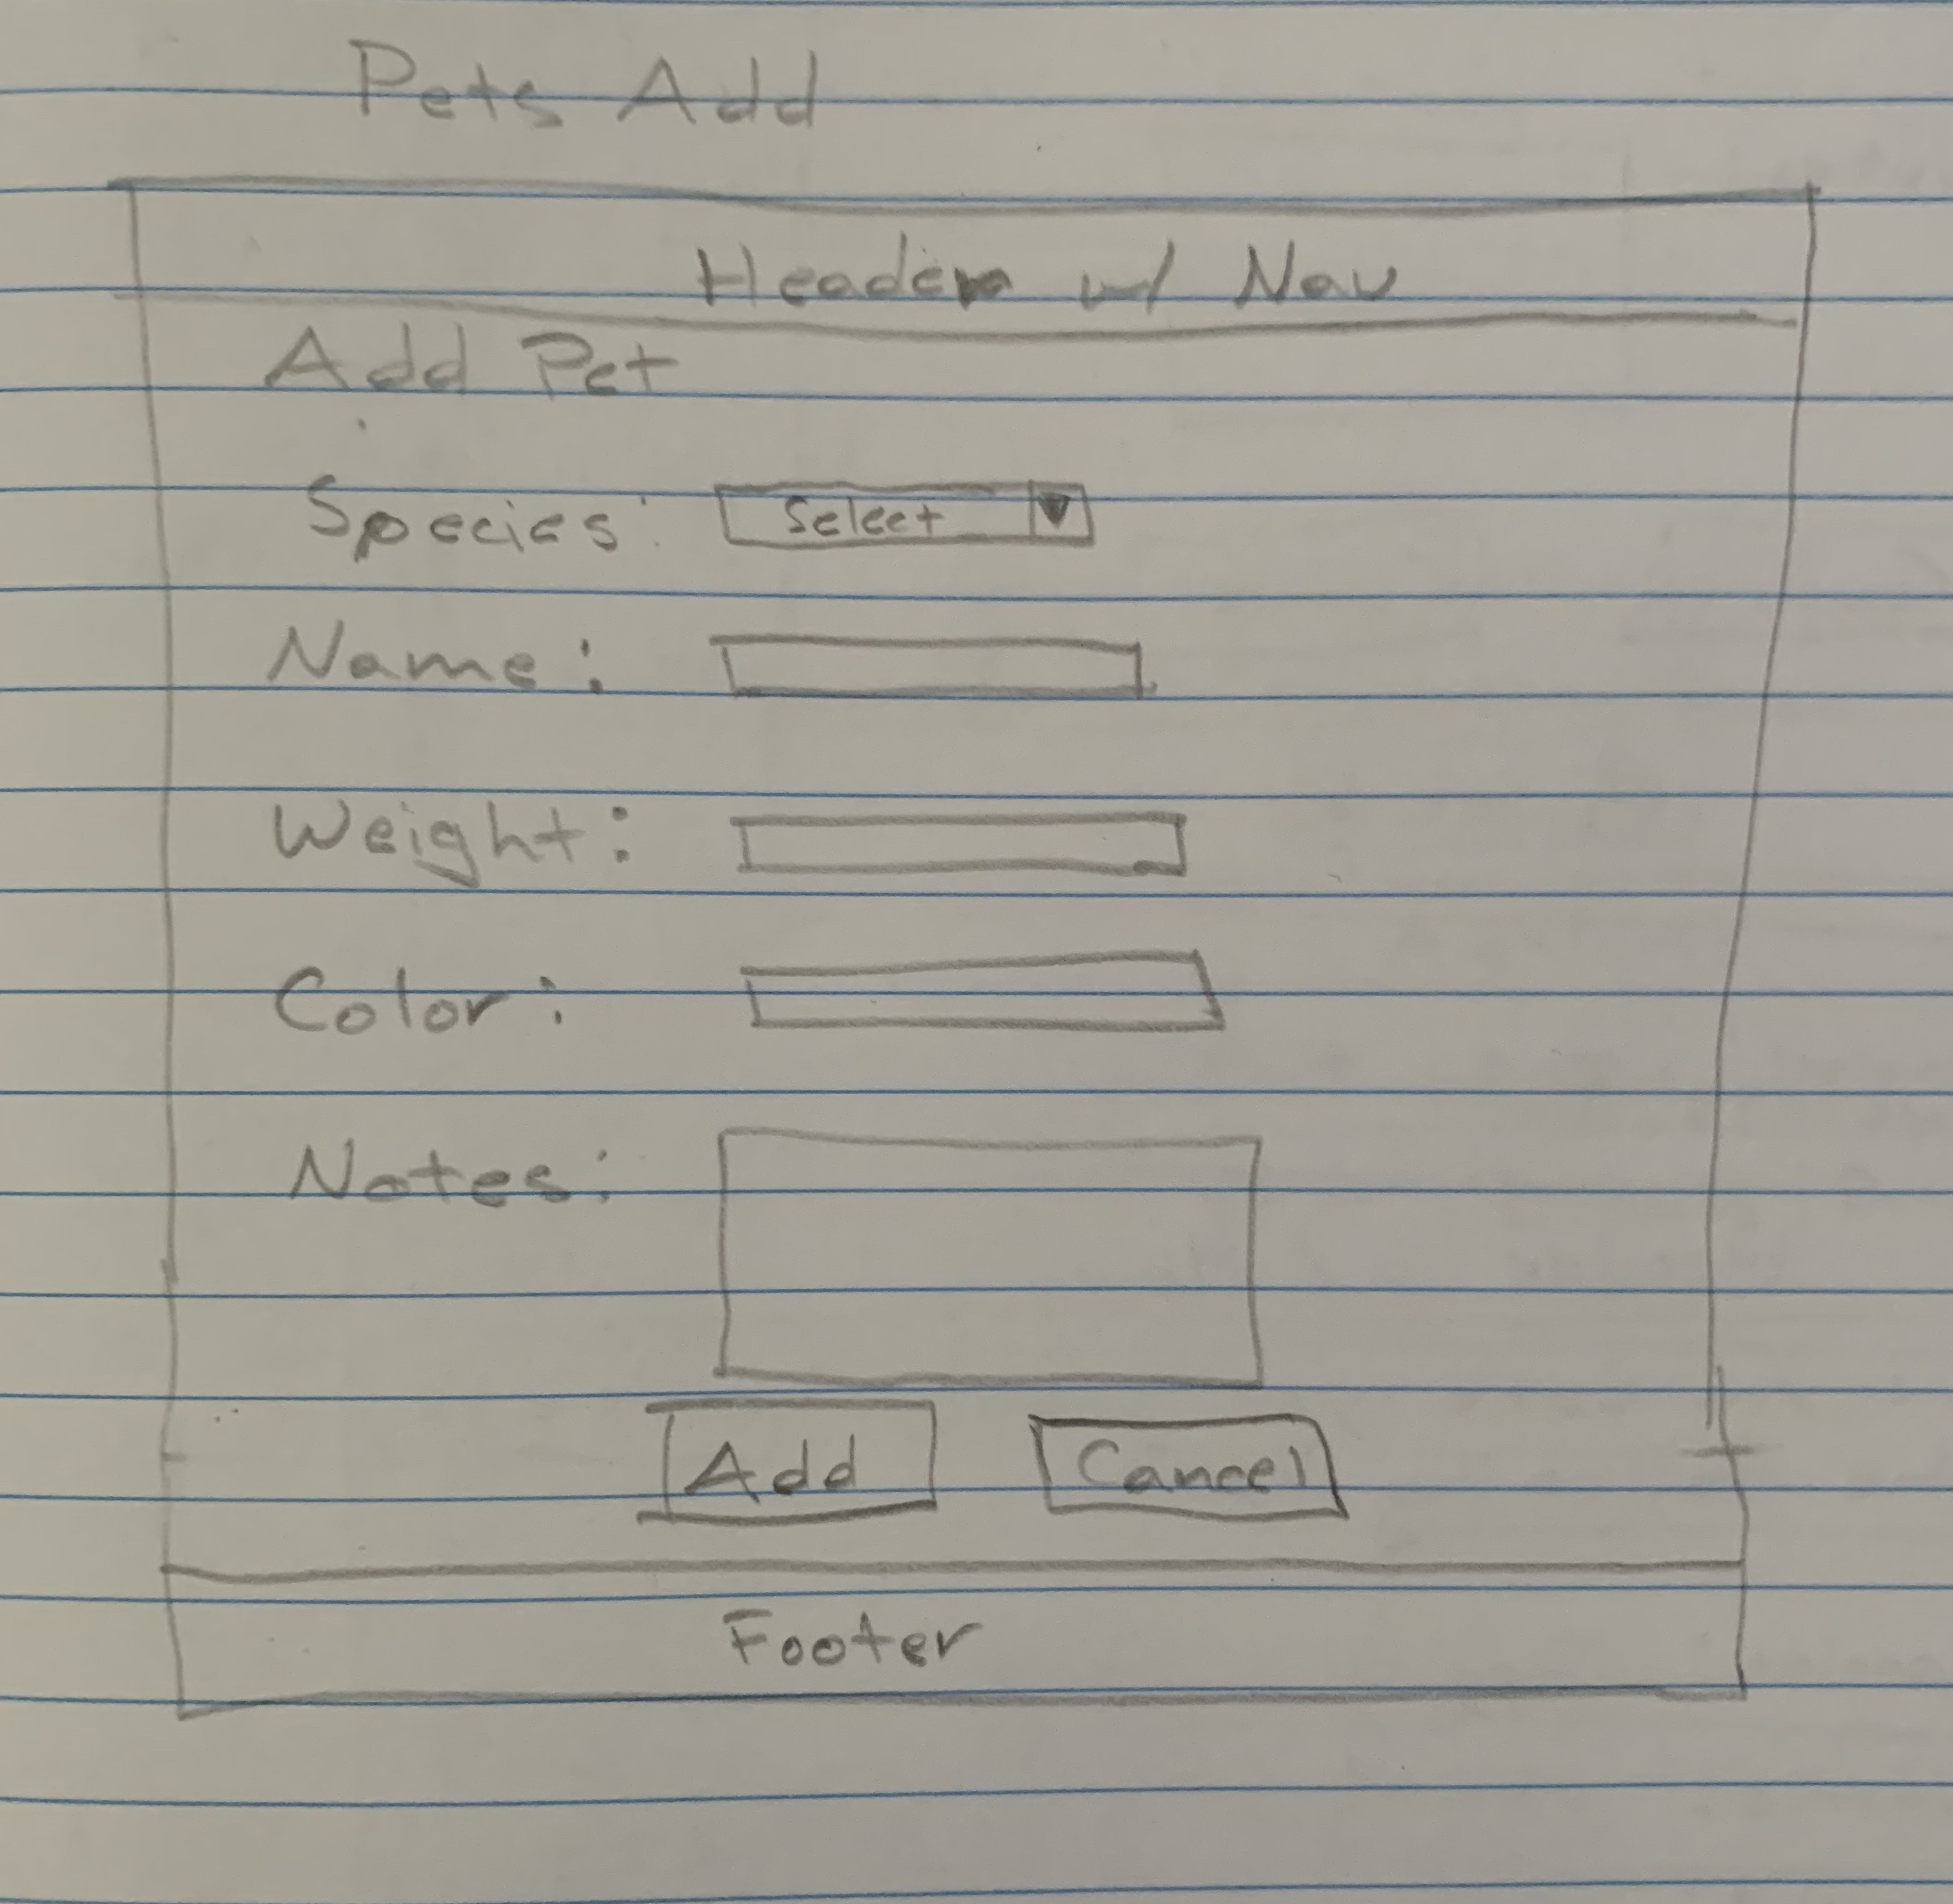 Pets Add
Header w/ Nav
Add Pet
Species: Select
Name:
Weight:
Color:
Notes:
Add Cancel
Footer